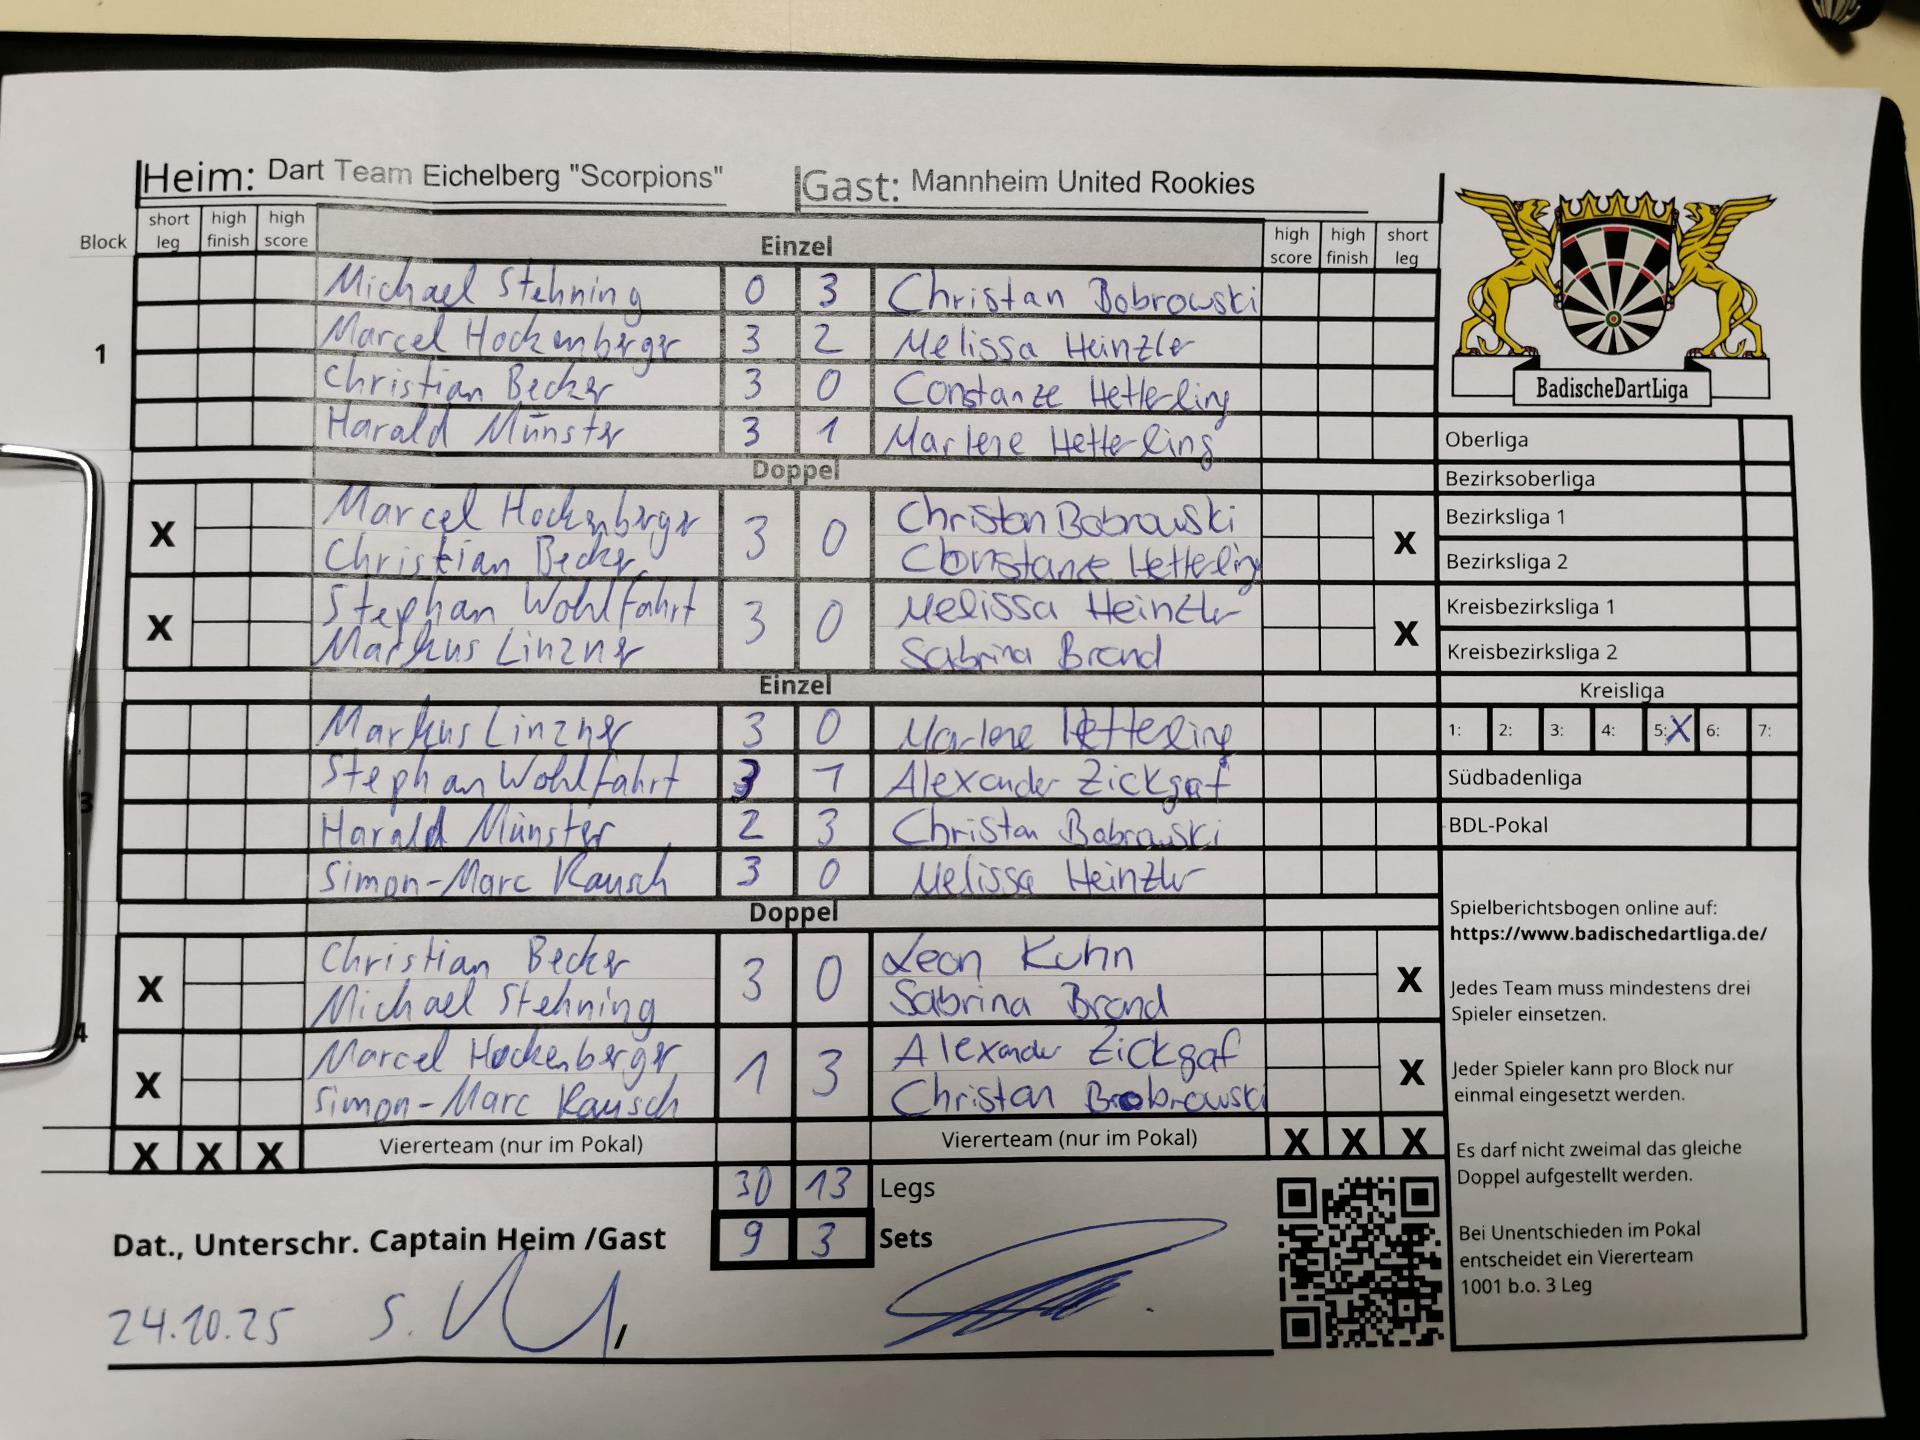 Heim: Dart Team Eichelberg "Scorpions" Gast: Mannheim United Rookies
Block short leg high finish high score Einzel high score high finish short leg
Michael Stehning 0 3 Christan Bobrowski
1 Marcel Hockenberger 3 2 Melissa Heinzler
Christian Becker 3 0 Constanze Hetterling
Harald Münster 3 1 Marlene Hetterling
Doppel
Marcel Hockenberger Christan Bobrowski
X 3 0 X
Christian Becker Constanze Hetterling
Stephan Wohlfahrt Melissa Heinzler
X 3 0 X
Markus Linzner Sabrina Brand
Einzel
Markus Linzner 3 0 Marlene Hetterling
Stephan Wohlfahrt 3 1 Alexander Zickgraf
3 Harald Münster 2 3 Christan Bobrowski
Simon-Marc Rausch 3 0 Melissa Heinzler
Doppel
Christian Becker Leon Kuhn
X 3 0 X
Michael Stehning Sabrina Brand
4 Marcel Hockenberger Alexander Zickgraf
X 1 3 X
Simon-Marc Rausch Christan Bobrowski
X X X Viererteam (nur im Pokal) Viererteam (nur im Pokal) X X X
30 13 Legs
Dat., Unterschr. Captain Heim /Gast 9 3 Sets
24.10.25 S. /
BadischeDartLiga
Oberliga
Bezirksoberliga
Bezirksliga 1
Bezirksliga 2
Kreisbezirksliga 1
Kreisbezirksliga 2
Kreisliga
1: 2: 3: 4: 5: X 6: 7:
Südbadenliga
BDL-Pokal
Spielberichtsbogen online auf:
https://www.badischedartliga.de/
Jedes Team muss mindestens drei
Spieler einsetzen.
Jeder Spieler kann pro Block nur
einmal eingesetzt werden.
Es darf nicht zweimal das gleiche
Doppel aufgestellt werden.
Bei Unentschieden im Pokal
entscheidet ein Viererteam
1001 b.o. 3 Leg